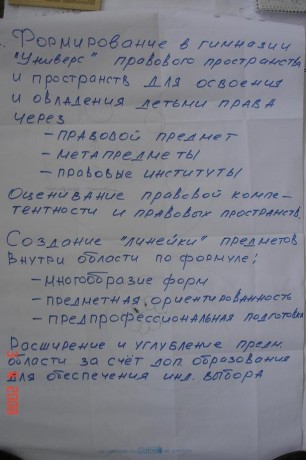 Формирование в гимназии
"Универс" правового пространства
и пространств для освоения
и овладения детьми права
через
– правовой предмет
– метапредметы
– правовые институты
Оценивание правовой компе-
тентности и правовых пространств
Создание "линейки" предметов
внутри области по формуле:
– многообразие форм
– предметная ориентированность
– предпрофессиональная подготовка
Расширение и углубление предм.
области за счёт доп. образования
для обеспечения инд. выбора